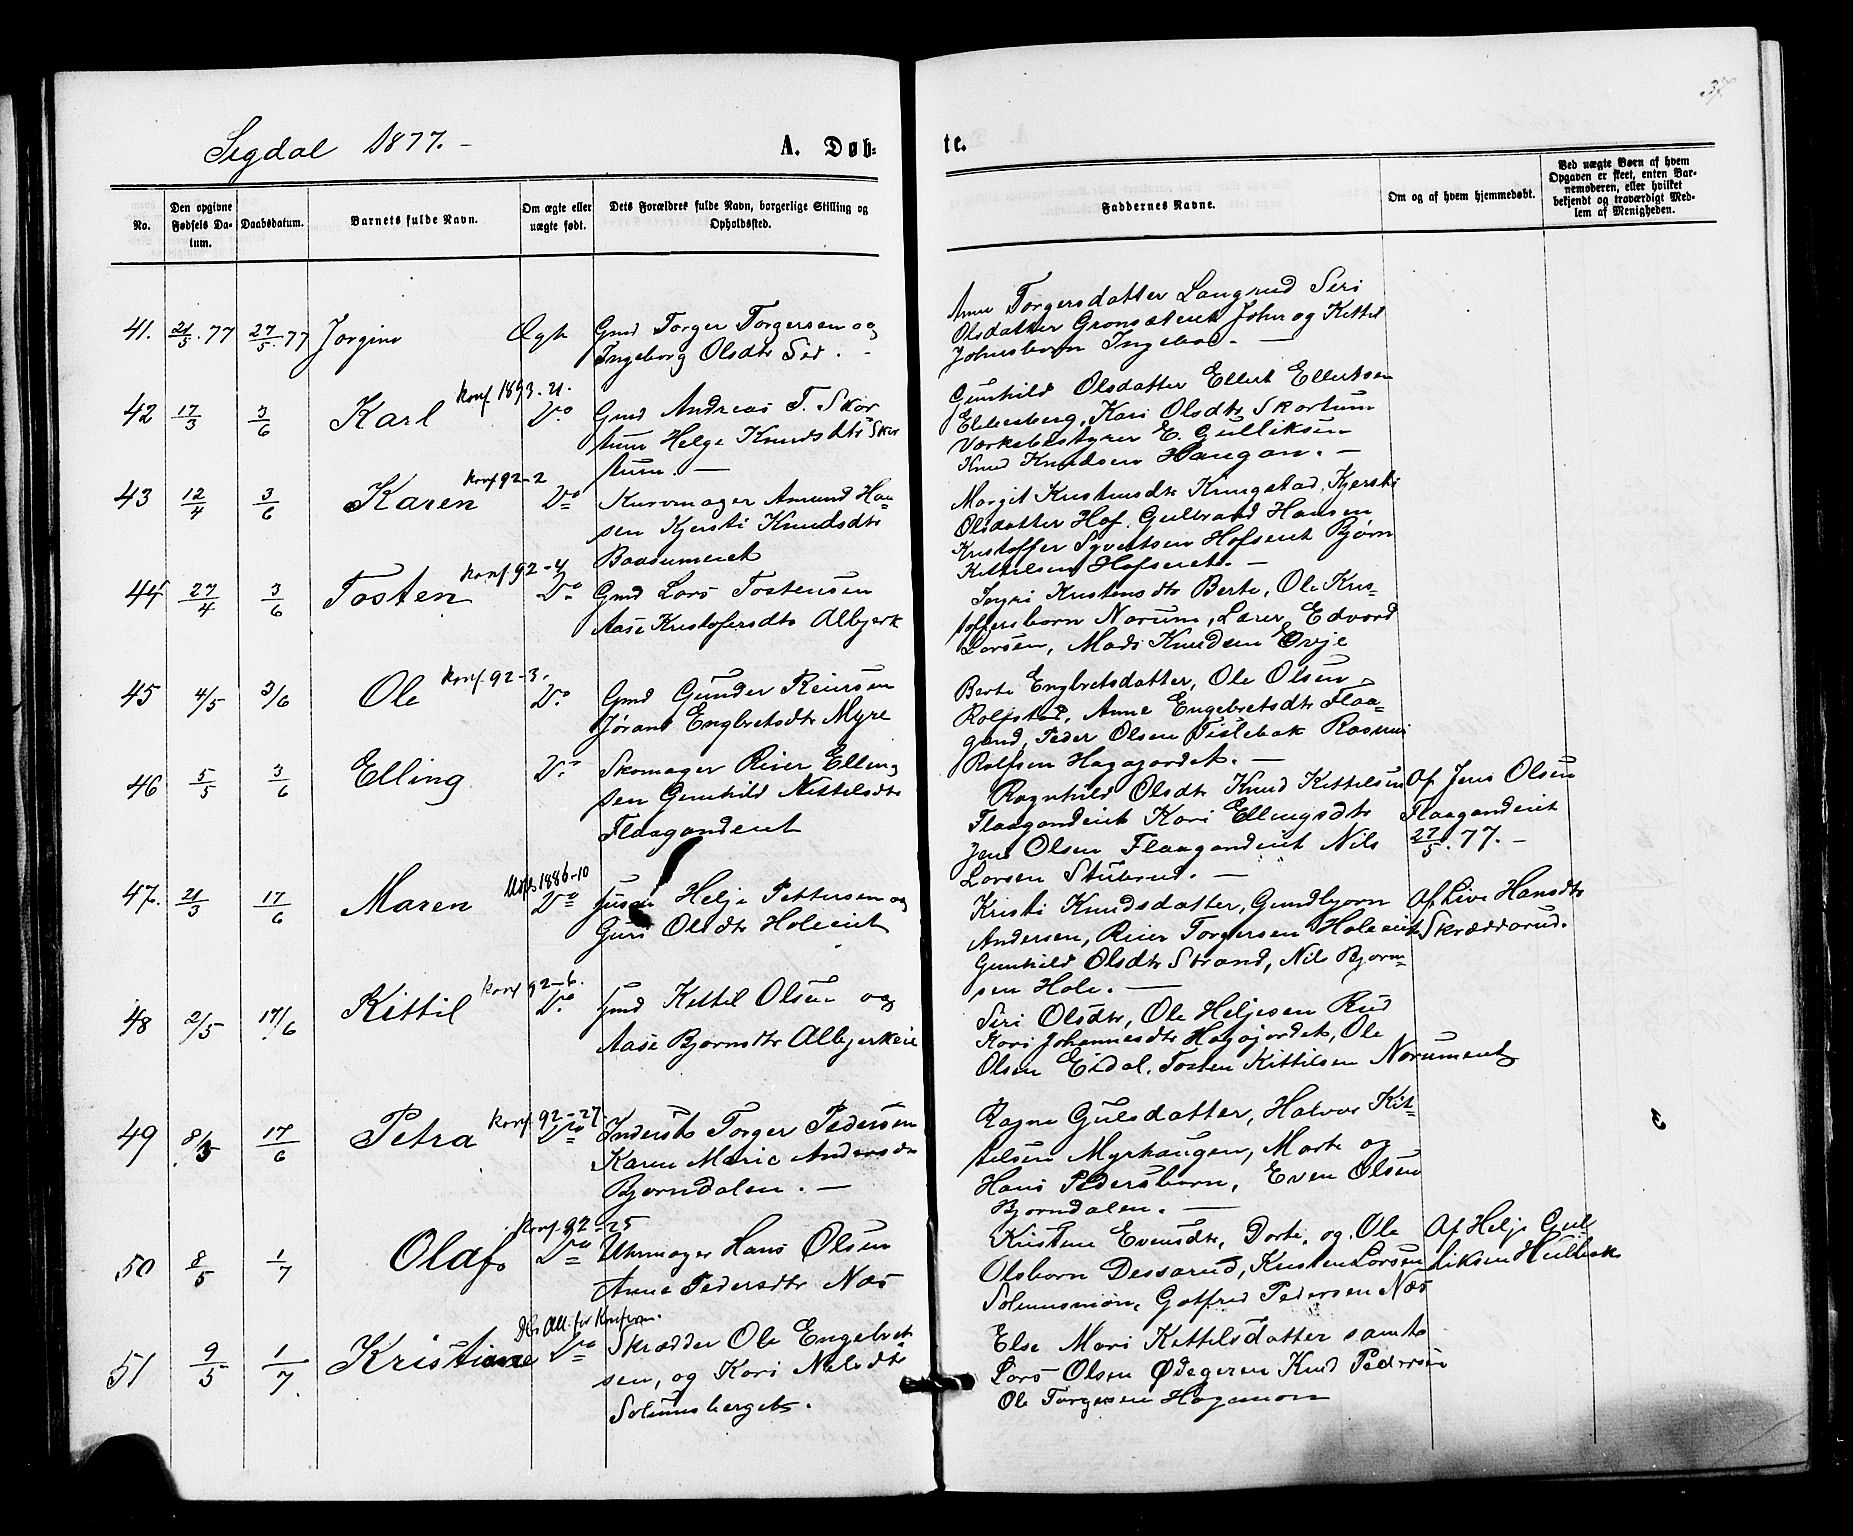 37
Sigdal 1877. –
A. Døb-
te.
No.
Den opgivne Fødsels Da-
tum.
Daabsdatum.
Barnets fulde Navn.
Om ægte eller
uægte født.
Dets Forældres fulde Navn, borgerlige Stilling og
Opholdssted.
Faddernes Navne.
Om og af hvem hjemmedøbt.
Ved uægte Børn af hvem
Opgaven er skeet, enten Bar-
nemoderen, eller hvilket
bekjendt og troværdigt Med-
lem af Menigheden.
41. 21/5.77 27/5.77 Jørgine Ægte
Gmd Torger Torgersen og
Ingeborg Olsdtr
Anne Torgersdatter Langrud Siri
Olsdatter Grønsæteret John og Kittil
Johnsbørn
Konf. 1893-21.
42 17/3 3/6 Karl Do
Gmd Andreas T. Skar
tum Helge Knudsdtr Skar
tum. –
Gunhild Olsdatter Ellert Ellertsen
Kari Olsdtr Skartum
Værksbestyrer E. Gulliksen
Knud Knudsen Haugan. –
Konf 92-2
43 12/4 3/6 Karen Do
Kurvmager Amund Han
sen Kjersti Knudsdtr
Margit Kristensdtr Kringstad, Kjersti
Olsdatter Hof. Gulbrand Hansen
Kristoffer Syvertsen Hofseiet Bjørn
Kittilsen Hofseiet. –
Konf 92-4
44 27/4 3/6 Tosten Do
Gmd Lars Tostensen
Aase Kristofersdtr Albjerk
Ingri Kristensdtr Berte, Ole Kris-
toffersbørn Narum, Lærer Edvard
Larsen, Mads Knudsen Evje
Konf 92-3.
45 4/5 3/6 Ole Do
Gmd Gunder Reiersen
Jøran Engbretsdtr Myre
Berte Engbretsdatter, Ole Olsen
Rolfstad, Anne Engebretsdtr Flaa-
gand, Peder Olsen Tislebak Rasmus
Rolfsen Hagajordet. –
46 5/5 3/6 Elling Do
Skomager Reier Elling
sen Gunhild Kittilsdtr
Flaagandeiet
Ragnhild Olsdtr Knud Kittilsen
Flaagandeiet Kari Ellingsdtr
Jens Olsen Flaagandeiet Nils
Larsen Stuberud. –
Af Jens Olsen
Flaagandeiet
27/5.77. –
1886-10
47. 21/3 17/6 Maren Do
Helje Pettersen og
Guri Olsdtr Holeeiet
Kristi Knudsdatter, Gundbjørn
Andersen, Reier Torgersen Holeeiet
Gunhild Olsdtr Strand, Nils Bjørn-
sen Hole. –
Af Live Hansdtr
Skræddarud.
Konf 92-6.
48 2/5 17/6 Kittil Do
Gmd Kittil Olsen og
Aase Bjørnsdtr Albjerkeie
Siri Olsdtr, Ole Heljesen Rud
Kari Johannesdtr Hagajordet, Ole
Olsen Eidal, Tosten Kittilsen Narumeiet
Konf. 92-27.
49 8/3 17/6 Petra Do
Inderst Torger Pedersen
Karen Marie Andersdtr
Bjørndalen. –
Ragne Gulsdatter, Halvor Kit-
tilsen Myrhaugen, Marte og
Hans Pedersbørn, Even Olsen
Bjørndalen. –
Konf. 92-25
50 8/5 1/7 Olaf Do
Uhrmager Hans Olsen
Anne Pedersdtr Næs
Kristine Evensdtr, Dorte, og Ole
Olsbørn Dessarud, Kristen Larsen
Solumsmon, Gotfred Pedersen Næs
Af Helje Gul
liksen Hulbak
51 9/5 1/7 Kristiane Do
Skrædder Ole Engebret
sen, og Kari Nilsdtr
Solumsberget.
Else Mari Kittilsdatter samt
Lars Olsen Ødegeren Knud Pedersen
Ole Torgersen Hagamon